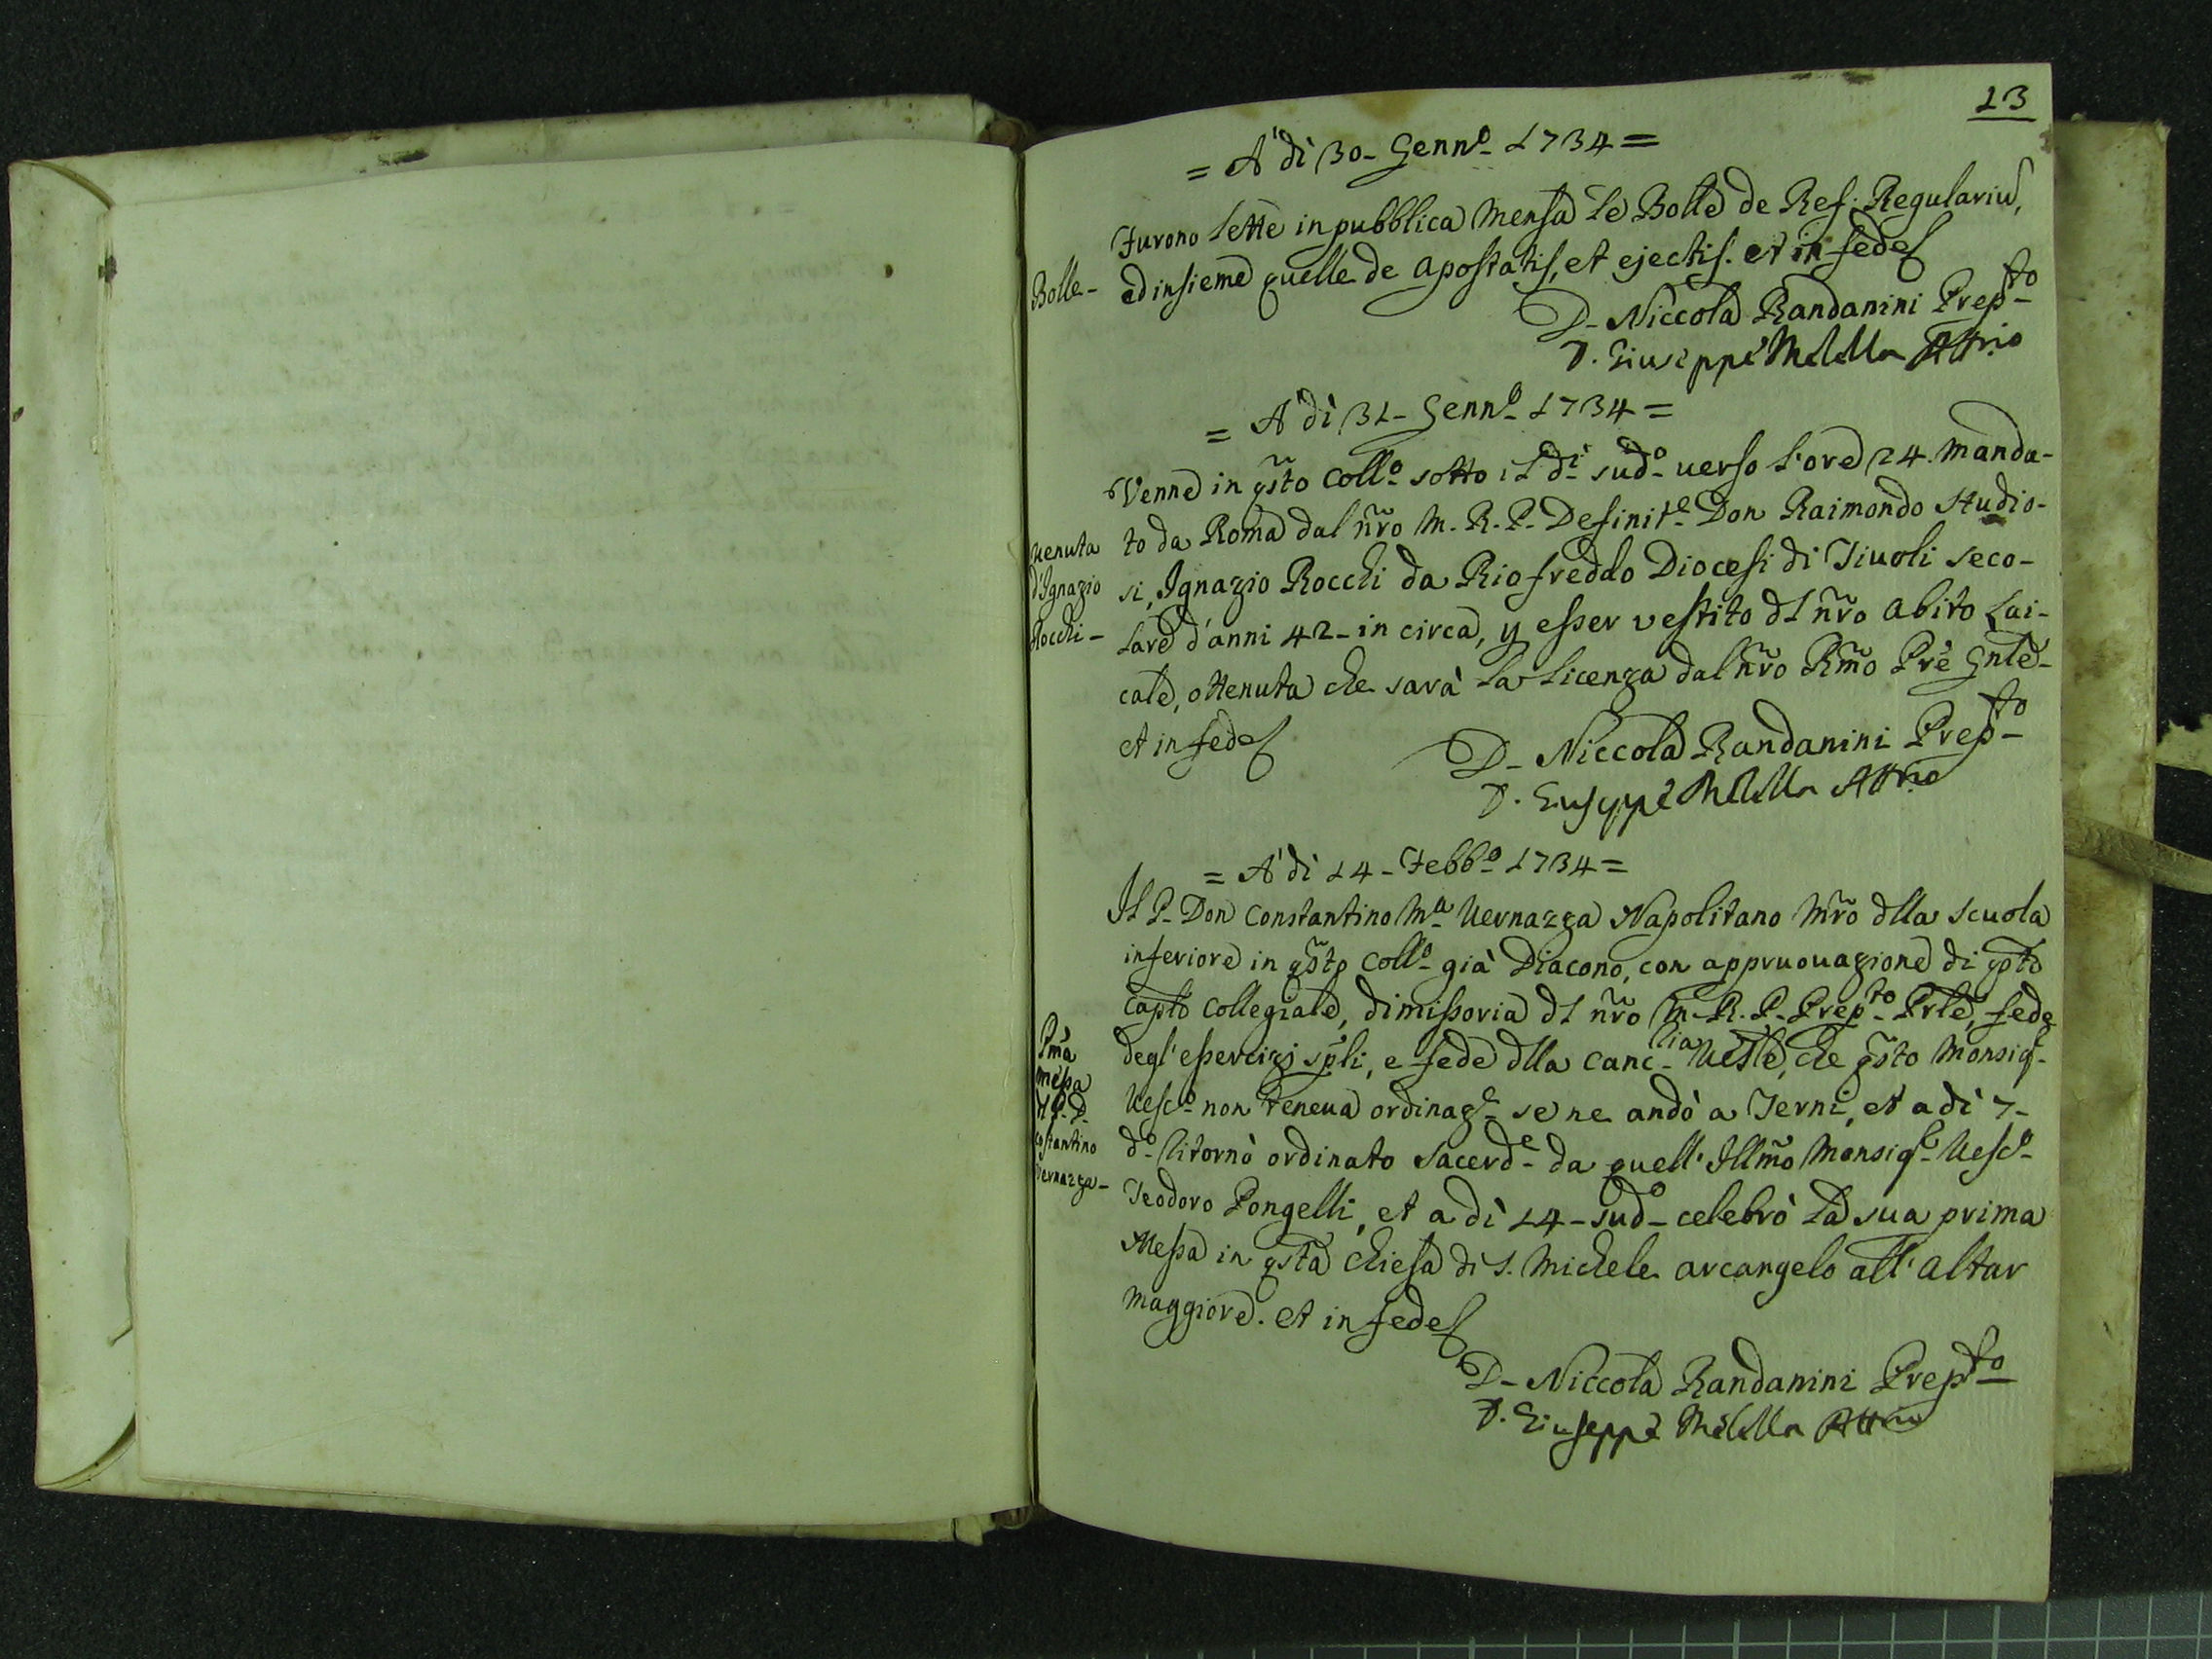 13
= A' dì 30- Genn.o 1734 =
Furono lette in pubblica mensa le Bolle de Ref: Regulariũ,
Bolle-
ed insieme quelle de apostatis, et ejectis. et in fede
D- Niccola Randanini Prep.to
D. Giuseppe Melella Att.rio
= A' dì 31- Genn.o 1734 =
Venne in q̃sto Coll.o sotto il dì sud.o verso l'ore 24. manda-
to da Roma dal ñro M. R. P. Definit.e Don Raimondo Studio-
si, Ignazio Rocchi da Riofreddo Diocesi di Tiuoli seco-
lare d'anni 42- in circa, p esser vestito dl ñro abito Lai-
cale, ottenuta che sarà la licenza dal ñro Rm̃o Prẽ Gnlẽ-
et in fede
uenuta
d'Ignazio
Rocchi-
D- Niccola Randanini Prep.to
D. Giuseppe Melella Att.rio
= A' dì 14- Febb.o 1734 =
Il P- Don Constantino M.a Uernazza Napolitano Mr̃o dlla scuola
inferiore in q̃sto Coll.o già Diacono, con appruouazione di q̃sto
Caplõ Collegiale, dimissoria dl ñro M. R. P. Prep.to Prlẽ, fede
degl'essercizj spli, e fede dlla Canc.lia Ueslẽ, che q̃sto Monsig.r
Uesc.o non teneua ordinaz.e se ne andò a Terni, et a dì 7-
d.o litornò ordinato Sacerd.e da quell'Illm̃o Monsig.r Uesc.o
Teodoro Pongelli, et a dì 14- sud.o celebrò la sua prima
Messa in q̃sta Chiesa di S. Michele arcangelo all'altar
maggiore. et in fede
Pm̃a
messa
dl P. D.
Costantino
Vernazza-
D- Niccola Randanini Prep.to
D. Giuseppe Melella Att.rio